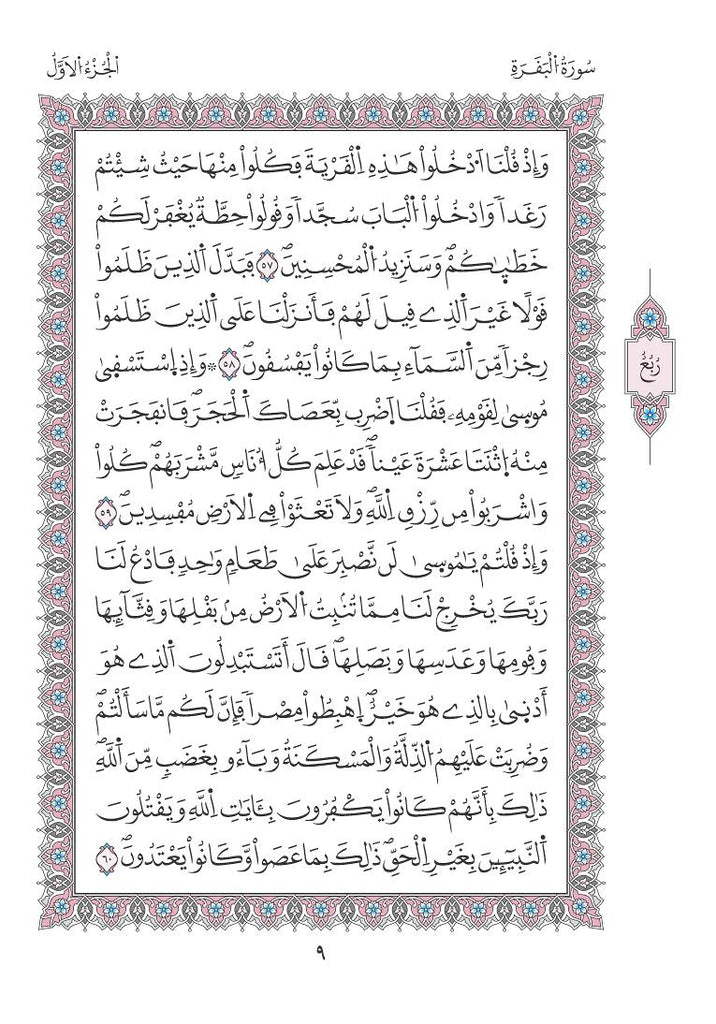 سُورَةُ اُ۬لْبَقَرَةِ
اَ۬لْجُزْءُ اُ۬لَاوَّلُ
وَإِذْ قُلْنَا اَ۟دْخُلُواْ هَٰذِهِ اِ۬لْقَرْيَةَ فَكُلُواْ مِنْهَا حَيْثُ شِئْتُمْ
رَغَداٗ وَادْخُلُواْ اُ۬لْبَابَ سُجَّداٗ وَقُولُواْ حِطَّةٞ يُغْفَرْ لَكُمْ
خَطَٰيَٰكُمْۖ وَسَنَزِيدُ اُ۬لْمُحْسِنِينَۖ ٥٧ فَبَدَّلَ اَ۬لذِينَ ظَلَمُواْ
قَوْلًا غَيْرَ اَ۬لذِے قِيلَ لَهُمْ فَأَنزَلْنَا عَلَى اَ۬لذِينَ ظَلَمُواْ
رِجْزاٗ مِّنَ اَ۬لسَّمَآءِ بِمَا كَانُواْ يَفْسُقُونَۖ ٥٨ ۞وَإِذِ اِ۪سْتَسْق۪يٰ
مُوس۪يٰ لِقَوْمِهِۦ فَقُلْنَا اَ۪ضْرِب بِّعَصَاكَ اَ۬لْحَجَرَۖ فَانفَجَرَتْ
مِنْهُ اُ۪ثْنَتَا عَشْرَةَ عَيْناٗۖ قَدْ عَلِمَ كُلُّ أُنَاسٖ مَّشْرَبَهُمْۖ كُلُواْ
وَاشْرَبُواْ مِن رِّزْقِ اِ۬للَّهِۖ وَلَا تَعْثَوْاْ فِے اِ۬لَارْضِ مُفْسِدِينَۖ ٥٩
وَإِذْ قُلْتُمْ يَٰمُوس۪يٰ لَن نَّصْبِرَ عَلَىٰ طَعَامٖ وَٰحِدٖ فَادْعُ لَنَا
رَبَّكَ يُخْرِجْ لَنَا مِمَّا تُنۢبِتُ اُ۬لَارْضُ مِنۢ بَقْلِهَا وَقِثَّآئِهَا
وَفُومِهَا وَعَدَسِهَا وَبَصَلِهَاۖ قَالَ أَتَسْتَبْدِلُونَ اَ۬لذِے هُوَ
أَدْن۪يٰ بِالذِے هُوَ خَيْرٌۖ اِ۪هْبِطُواْ مِصْراٗ فَإِنَّ لَكُم مَّا سَأَلْتُمْۖ
وَضُرِبَتْ عَلَيْهِمُ اُ۬لذِّلَّةُ وَالْمَسْكَنَةُ وَبَآءُو بِغَضَبٖ مِّنَ اَ۬للَّهِۖ
ذَٰلِكَ بِأَنَّهُمْ كَانُواْ يَكْفُرُونَ بِـَٔايَٰتِ اِ۬للَّهِ وَيَقْتُلُونَ
اَ۬لنَّبِيٓـِٕينَ بِغَيْرِ اِ۬لْحَقِّۖ ذَٰلِكَ بِمَا عَصَواْ وَّكَانُواْ يَعْتَدُونَۖ ٦٠
رُبُعُ
٩